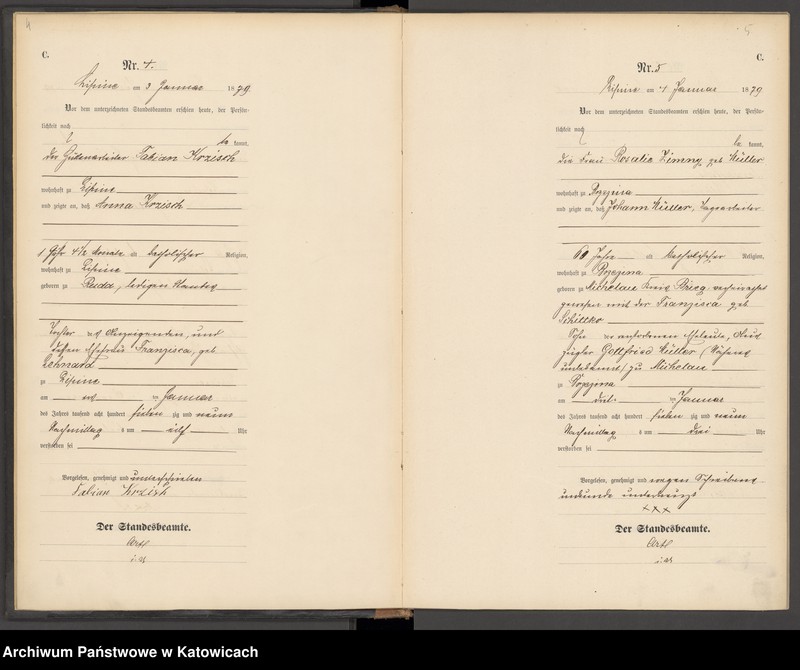 C.
Nr. 4.
Lipine am 3 Januar 1879
Vor dem unterzeichneten Standesbeamten erschien heute, der Persön-
lichkeit nach
be kannt,
der Hüttenarbeiter Fabian Krzisch
wohnhaft zu Lipine
und zeigte an, daß Anna Krzisch
1 Jahr 4 1/2 Monate alt katholischer Religion,
wohnhaft zu Lipine
geboren zu Ruda, ledigen Standes
Tochter des Anzeigenden, und
dessen Ehefrau Franzisca, geb
Lehnard
zu Lipine
am Januar
des Jahres tausend acht hundert sieben zig und neun
Nachmittag s um elf Uhr
verstorben sei
Vorgelesen, genehmigt und unterschrieben
Fabian Krzisch
Der Standesbeamte.
5
C.
Nr. 5
Lipine am 4 Januar 1879
Vor dem unterzeichneten Standesbeamten erschien heute, der Persön-
lichkeit nach
be kannt,
die Frau Rosalie Zimny, geb Müller
wohnhaft zu
und zeigte an, daß Johann Müller, Tagearbeiter
60 Jahre alt katholischer Religion,
wohnhaft zu
geboren zu Nicholau Kreis verheirathet
gewesen mit der Franzisca geb
Schittko
Sohn der verstorbenen Eheleute,
Gottfried Müller
unbekannt) zu Nicholau
zu
am drei Januar
des Jahres tausend acht hundert sieben zig und neun
Nachmittag s um drei Uhr
verstorben sei
Vorgelesen, genehmigt und wegen Schreibens-
unkunde
+++
Der Standesbeamte.
Archiwum Państwowe w Katowicach